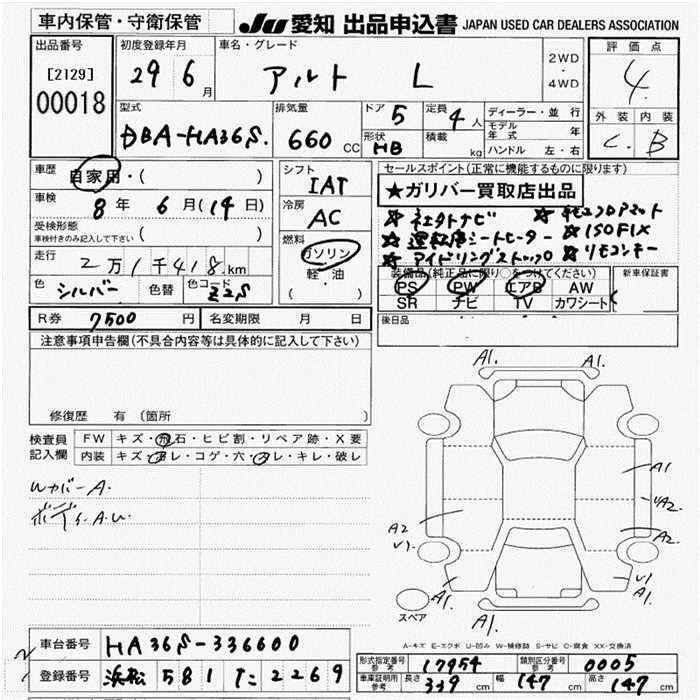 車内保管・守衛保管
JU 愛知 出品申込書 JAPAN USED CAR DEALERS ASSOCIATION
出品番号
[2129]
00018
初度登録年月
29 6月
車名・グレード
アルト L
2WD
・
4WD
評価点
4
外装 内装
C. B
型式
DBA-HA36S.
排気量
660 CC
ドア 5
形状 HB
定員 4人
積載 kg
ディーラー・並行
モデル年式 年
ハンドル 左・右
車歴
自家用・( )
車検
8年 6月(14日)
受検形態
車検付きのみ記入して下さい ( )
走行
2万1千418km
色 シルバー 色替 色コード Z2S
シフト
IAT
冷房
AC
燃料
ガソリン
軽・油
( )
セールスポイント(正常に機能するものに限ります)
★ガリバー買取店出品
☆ ネェタトナビ
☆ 運転席シートヒーター ☆ ISOFIX
☆ アイドリングストップ ☆ リモコンキー
装備品(純正品に限り○をつけてください)
PS PW エアB AW
SR ナビ TV カワシート
新車保証書
後日品
R券 7500 円 名変期限 月 日
注意事項申告欄(不具合内容等は具体的に記入して下さい)
修復歴 有 (箇所 )
検査員記入欄
FW キズ・飛石・ヒビ割・リペア跡・X要
内装 キズ・ヨレ・コゲ・穴・スレ・キレ・破レ
ボディ A.U
A1. A1.
A1
A2
A2.
A2
U1
A1. A1. A1.
スペア
A-キズ E-エクボ U-凹み W-補修跡 S-サビ C-腐食 XX-交換済
車台番号 HA36S-336600
登録番号 浜松 581 た 2269
形式指定番号 参考 17954 類別区分番号 参考 0005
車庫証明用 参考 長さ 339 cm 幅 147 cm 高さ 147 cm